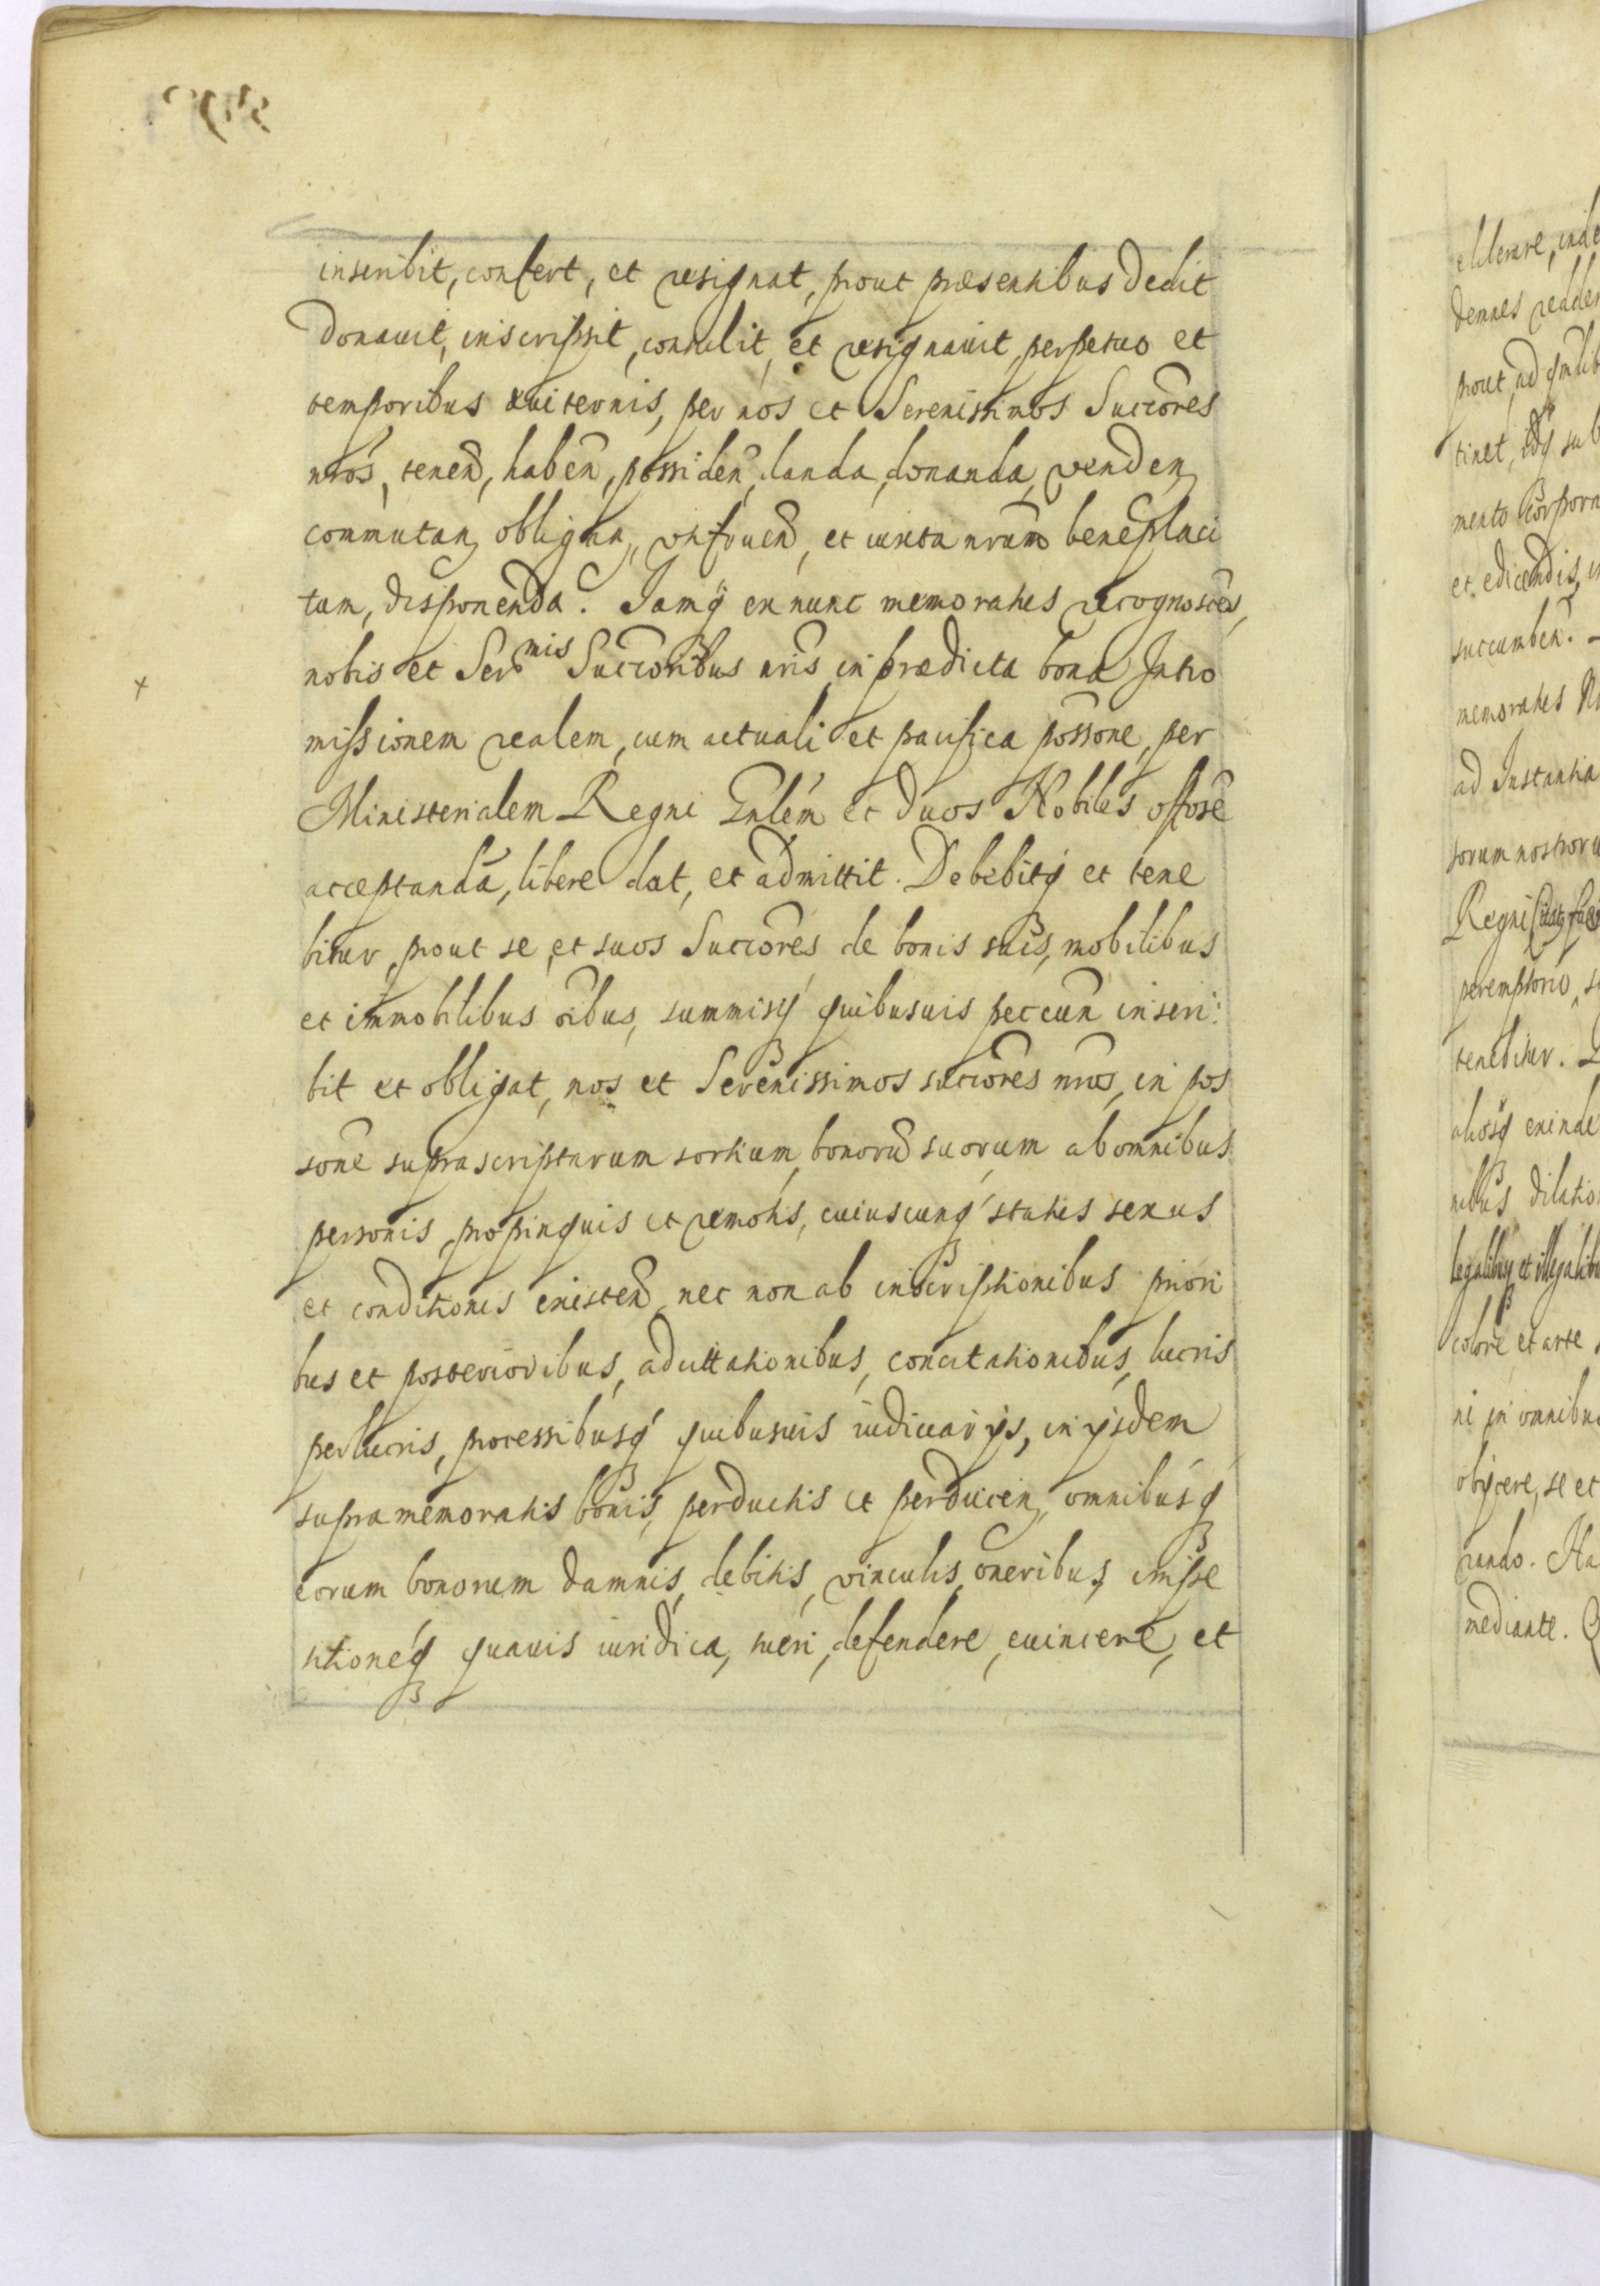 inscribit, confert, et resignat, prout præsentibus dedit
donauit, inscripsit, contulit, et resignauit, perpetuo et
temporibus æuiternis, per nos et Serenissimos Succores
nros, tenen, haben, possiden, danda, donanda, venden,
commutan, obligan, vtifruen, et iuxta nrum beneplaci
tum, disponenda. Iamq ex nunc memoratus recognoscens,
nobis et Sermis Succoribus nris in prædicta bona Intro
missionem realem, cum actuali et pacifica possone, per
Ministerialem Regni Gnlem et duos Nobiles
acceptanda, libere dat, et admittit. Debebitq et tene
bitur, prout se et suos Succores de bonis suis, mobilibus
et immobilibus oibus, summisq quibusuis peccun inscri:
bit et obligat, nos et Serenissimos succores nros, in pos
sone suprascriptarum sortium, bonoru suorum ab omnibus
personis, propinquis et remotis, cuiuscunq status sexus
et conditionis existen, nec non ab inscriptionibus priori
bus et posterioribus, aduitationibus, concitationibus, lucris
perlucris, processibusq quibusuis iudiciarijs, in ijsdem
supramemoratis bonis, perductis et perducen, omnibusq
eorum bonorum damnis, debitis, vinculis, oneribus, impe
titioneq quauis iuridica, tueri, defendere, euincere, et
x
eliberare, inde
demnes redder
prout, ad
tinet, sub
mento corpora
et edicendis, in
succumben.
memoratus
ad Instantia
sorum nostroru
Regni
peremptorie,
tenebitur.
aliosq exinde
nibus dilatio
legalibus et illegalibu
colore et arte
ni in omnibu
obijcere, se et
rando. Ha
mediante.